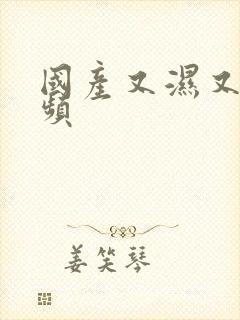 國產又濕又
頻
姜笑琴